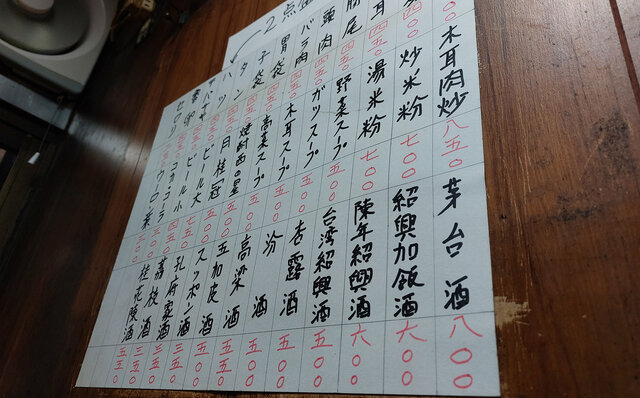 ２点
木耳肉炒 八五〇 茅台酒 八〇〇
四〇〇 炒米粉 七〇〇 紹興加飯酒 六〇〇
耳 四五〇 湯米粉 七〇〇 陳年紹興酒 六〇〇
尾 四五〇 野菜スープ 五〇〇 台湾紹興酒 五〇〇
頭肉 四五〇 ガツスープ 五〇〇 杏露酒 五五〇
バラ肉 四五〇 木耳スープ 五〇〇 汾酒 五五〇
胃袋 四五〇 高菜スープ 五〇〇 高梁酒 五五〇
子袋 四五〇 焼酎酉の星 五〇〇 五加皮酒 五五〇
タン 月桂冠 五〇〇 スッポン酒 五〇〇
ハツ ビール大 七五〇 孔府家酒 三五〇
ビール小 茘枝酒 三五〇
コカ・コーラ 桂花陳酒 五五〇
セロリ ウーロン茶